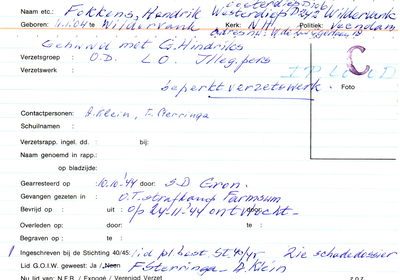 Oosterdiep 106/
Naam etc.: Fokkens, Hendrik Westerdiep Wildervank
Geboren: 4.1.04 te Wildervank Kerk: N.H. Politiek: Veendam
Gehuwd met G. Hindriks adres nu:
Verzetsgroep : O.D. L.O. Illeg. pers
Verzetswerk :
C
beperkt verzetswerk. Foto
Contactpersonen: A. Klein, F. Sterringa
Schuilnaam :
Verzetsrapp. ingel. dd. : bij:
Naam genoemd in rapp.:
op bladzijde:
Gearresteerd op : 10.10.'44 door: S.D Gron.
Gevangen gezeten in : O.T. strafkamp Farmsum
Bevrijd op - uit : Op 24-11-'44 ontvlucht -
Overleden op: door: te :
Begraven op : te :
Ingeschreven bij de Stichting 40/45: lid pl. best. St. 40/45 Zie schadedossier
Lid G.O.I.W. geweest: Ja / Neen F Sterringa - A. Klein
Nu lid van: N.F.R. / Expogé / Verenigd Verzet Z.O.Z.